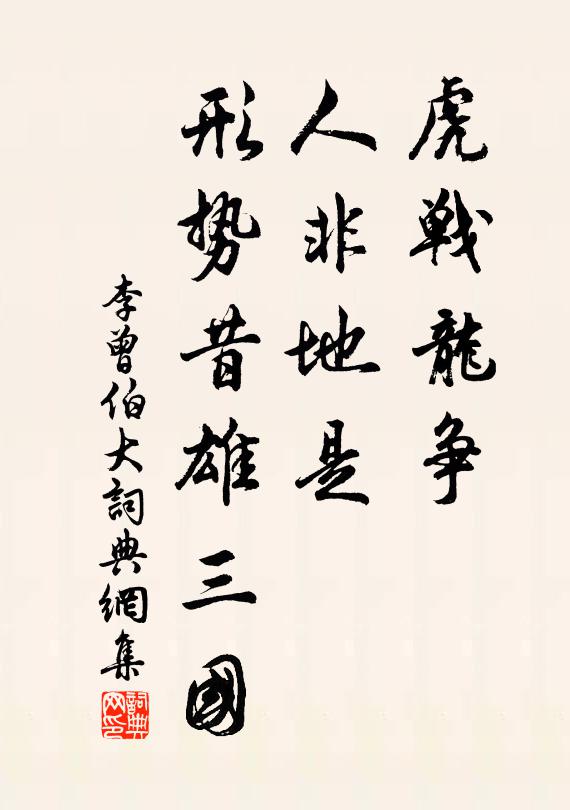 虎戰龍爭
人非地是
形势昔雄三國
李曾伯大詞典網集
詞典网印